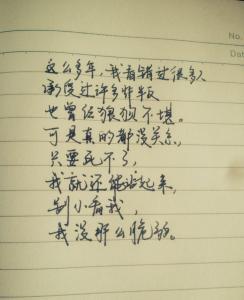 No.
Date
这么多年，我看错过很多人
承受过许多背叛
也曾经狼狈不堪。
可是真的都没关系，
只要死不了，
我就还能站起来，
别小看我，
我没那么脆弱。